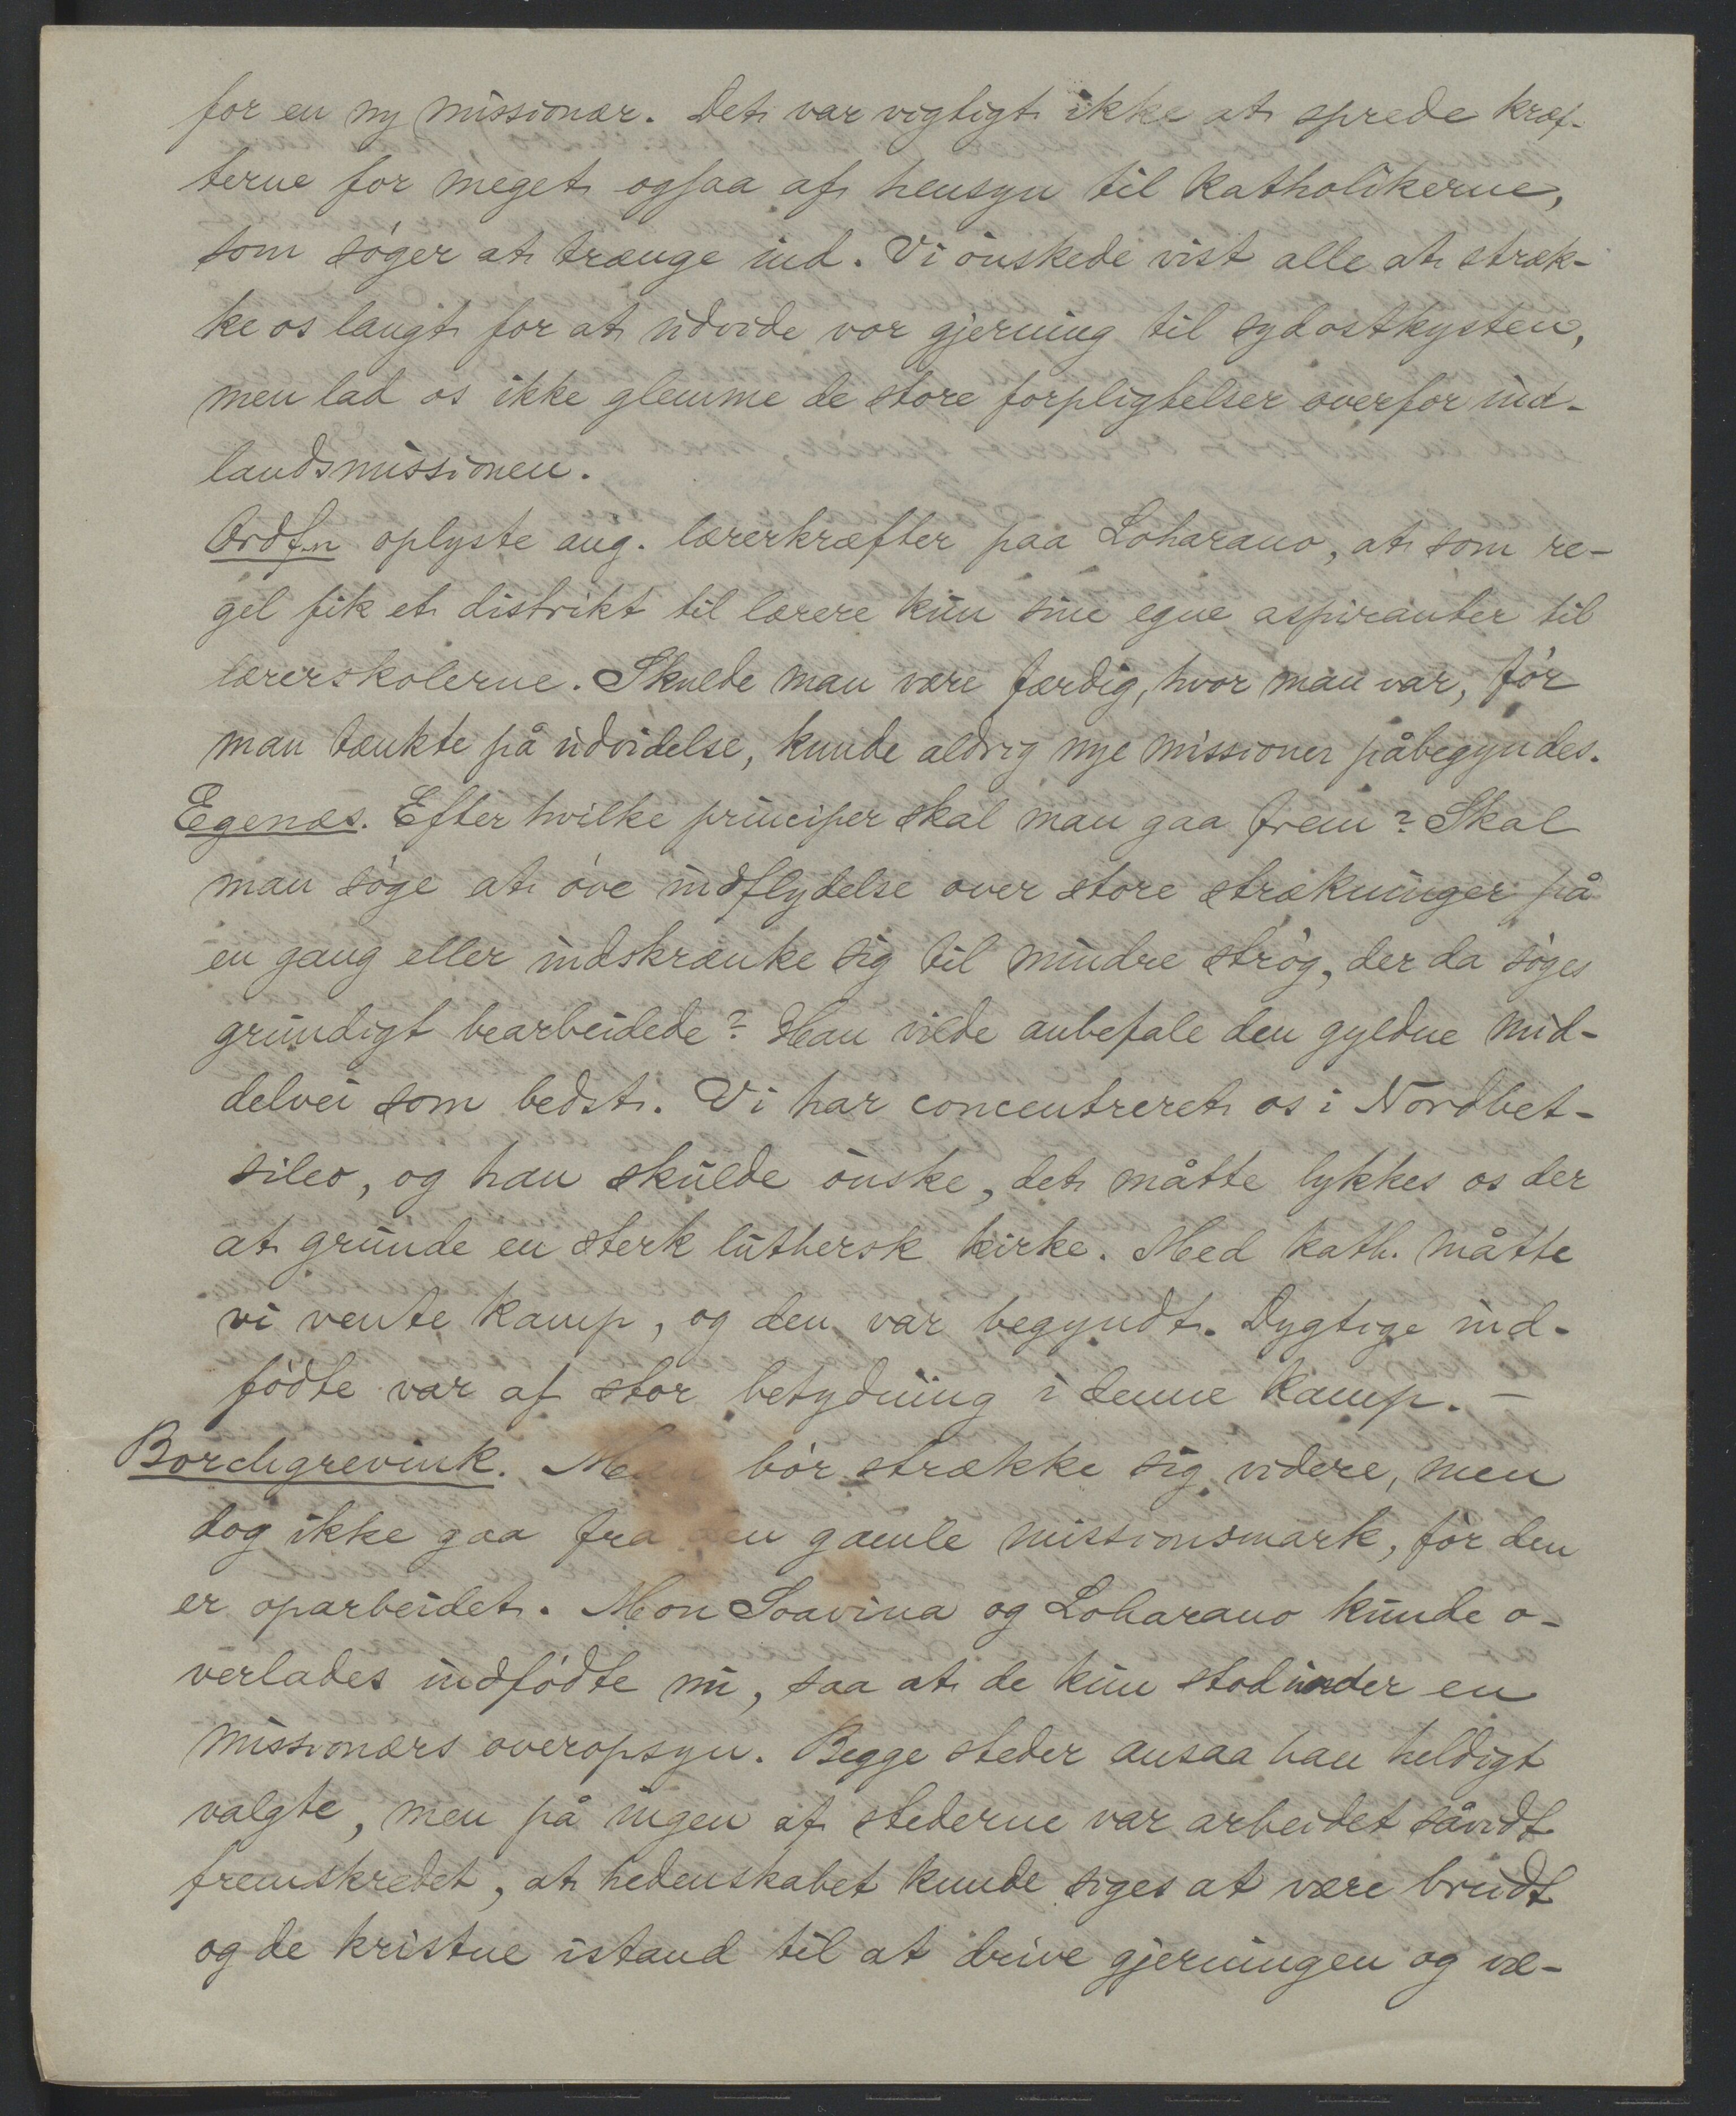 for en ny missionær. Det var vigtigt ikke at sprede kræf-
terne for meget ogsaa af hensyn til katholikerne,
som søger at trænge ind. Vi ønskede vist alle at stræk-
ke os langt for at udvide vor gjerning til sydostkysten,
men lad os ikke glemme de store forpligtelser overfor ind-
landsmissionen.
Ordf.n oplyste ang. lærerkræfter paa Loharano, at som re-
gel fik et distrikt til lærere kun sine egne aspiranter til
lærerskolerne. Skulde man være færdig, hvor man var, før
man tænkte på udvidelse, kunde aldrig nye missioner påbegyndes.
Egenæs. Efter hvilke principer skal man gaa frem? Skal
man søge at øve indflydelse over store strækninger på
en gang eller indskrænke sig til mindre strøg, der da søges
grundigt bearbeidede? Han vilde anbefale den gyldne mid-
delvei som bedst. Vi har concentreret os i Nordbet-
sileo, og han skulde ønske, det måtte lykkes os der
at grunde en sterk luthersk kirke. Med kath. måtte
vi vente kamp, og den var begyndt. Dygtige ind-
fødte var af stor betydning i denne kamp. —
Borchgrevink. Man bør strække sig videre, men
dog ikke gaa fra den gamle missionsmark, før den
er oparbeidet. Mon Soavina og Loharano kunde o-
verlades indfødte nu, saa at de kun stod under en
missionærs overopsyn. Begge steder ansaa han heldigt
valgte, men på ingen af stederne var arbeidet såvidt
fremskredet, at hedenskabet kunde siges at være brudt
og de kristne istand til at drive gjerningen og væ-